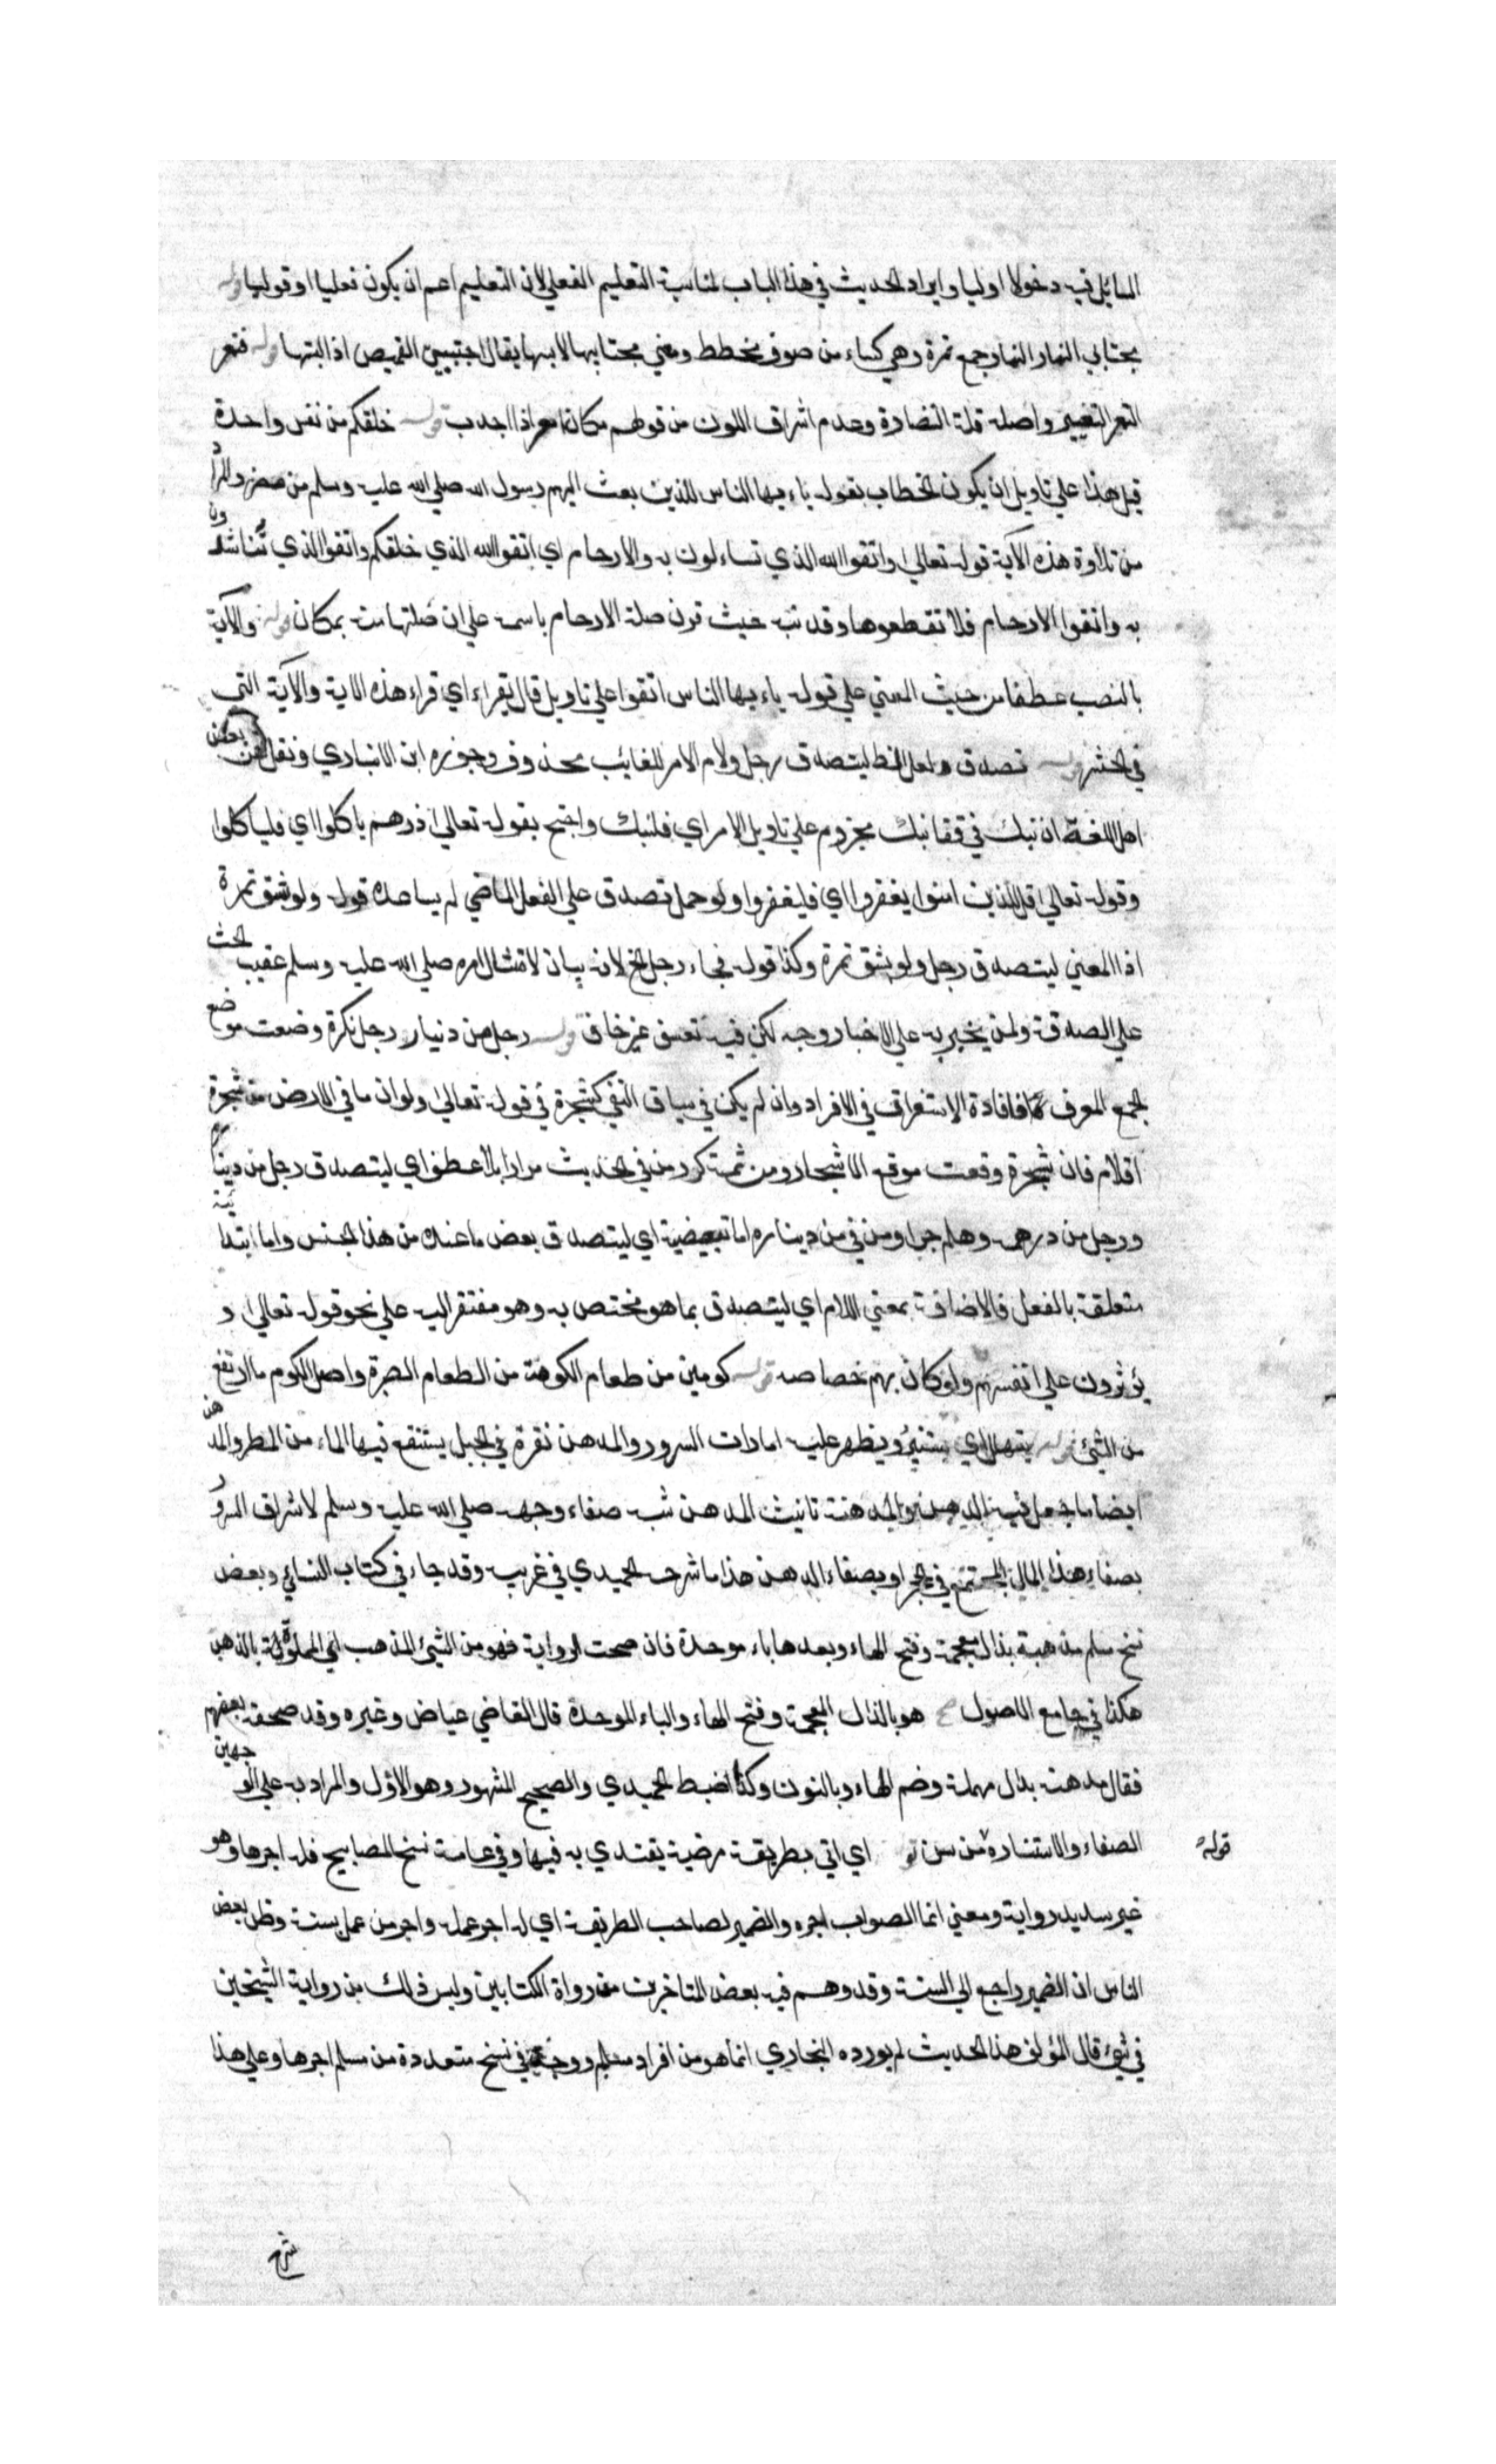 المسائل فيه دخولا اوليا وايراد الحديث في هذا الباب لمناسبة التعليم الفعلي لان التعليم اعم ان يكون فعليا او قوليا قوله
مجتابي النمار النمار جمع نمرة وهي كساء من صوف مخطط ومعني مجتابيها لابسيها يقال اجتبيت القميص اذا لبتها قوله فتمعر
التمعر التغيير واصله قلة النضارة وعدم اشراق اللون من قولهم مكان امعر اذا اجدب قوله خلقكم من نفس واحدة
قيل هذا علي تاويل ان يكون الخطاب بقوله ياءيها الناس للذين بعث اليهم رسول الله صلي الله عليه وسلم من مضر والمراد
من تلاوة هذه الآية قوله تعالي واتقوا الله الذي تساءلون به والارحام اي اتقوا الله الذي خلقكم واتقوا الذي تناشدون
به واتقوا الارحام فلا تقطعوها وقد نبه حيث قرن صلة الارحام باسمه علي ان صلتها منه بمكان قوله والآية
بالنصب عطفا من حيث المعني علي قوله ياءيها الناس اتقوا علي تاويل قال بقراء اي قراء هذه الاية والآية التي
في الحشر قوله تصدق ولعل الظ ليتصدق رجل ولام الامر للغايب محذوف وجوزه ابن الانباري ونقل عن بعض
اهل اللغة ان نبك في قفا نبك مجزوم علي تاويل الامر اي فلنبك واحتج بقوله تعالي ذرهم ياكلوا اي فلياكلوا
وقوله تعالي قل للذين امنوا يغفروا اي فليغفروا ولو حمل تصدق علي الفعل الماضي لم يساعده قوله ولو بشق تمرة
اذا المعني ليتصدق رجل ولو بشق تمرة وكذا قوله فجاء رجل الخ لانه بيان لامتثال امره صلي الله عليه وسلم عقيب الحث
علي الصدقة ولمن يخبر به علي الاخبار وجه لكن فيه تعسف غير خاف قوله رجل من دنيار رجل نكرة وضعت موضع
الجمع المعرف لافادة الاستغراق في الافراد وان لم يكن في سياق النفي كشجرة في قوله تعالي ولو ان ما في الارض من شجرة
اقلام فان شجرة وقعت موقع الاشجار ومن ثمة كرر من في الحديث مرارا بلا عطف اي ليتصدق رجل من ديناره
ورجل من درهمه وهلم جرا ومن في من ديناره اما تبعيضية اي ليتصدق بعض ما عنده من هذا الجنس واما ابتدائية
متعلقة بالفعل فالاضافة بمعني اللام اي ليتصدق بما هو مختص به وهو مفتقر اليه علي نحو قوله تعالي و
يؤثرون علي انفسهم ولو كان بهم خصاصه قوله كومين من طعام الكومة من الطعام الصبرة واصل الكوم ما ارتفع
من الشئ قوله يتهلل اي يستنير ويظهر عليه امارات السرور والمدهن نقرة في الجبل يستنقع فيها الماء من المطر والمدهن
ايضا ما جعل فيه الدهن والمدهنة تانيث المدهن شبه صفاء وجهه صلي الله عليه وسلم لاشراق السرور
بصفاء هذا الماء المجتمع في الحجر او بصفاء الدهن هذا ما شرحه الحميدي في غريبه وقد جاء في كتاب النسائي وبعض
نسخ مسلم مذهبة بذال معجمة وفتح الهاء وبعدها باء موحدة فان صحت الرواية فهو من الشئ المذهب اي المملوة بالذهب
هكذا في جامع الاصول هو بالذال المعجمة وفتح الهاء والباء الموحدة قال القاضي عياض وغيره وقد صحفه بعضهم
فقال مدهنة بدال مهملة وضم الهاء وبالنون وكذا ضبط الحميدي والصحيح المشهور وهو الاول والمراد به علي الوجهين
الصفاء والاستنارة قوله من سن اي اتي بطريقة مرضية يقتدي به فيها وفي عامة نسخ المصابيح فله اجرها وهو
غير سديد رواية ومعني انما الصواب اجره والضمير لصاحب الطريقة اي له اجر عمله واجر من عمل بسنته وظن بعض
الناس ان الضمير راجع الي السنة وقد وهم فيه بعض المتاخرين من رواة الكتابين وليس ذلك من رواية الشيخين
في شئ قال المؤلف هذا الحديث لم يورده البخاري انما هو من افراد مسلم ووجدته في نسخ متعددة من مسلم اجرها وعلي هذا
شرح